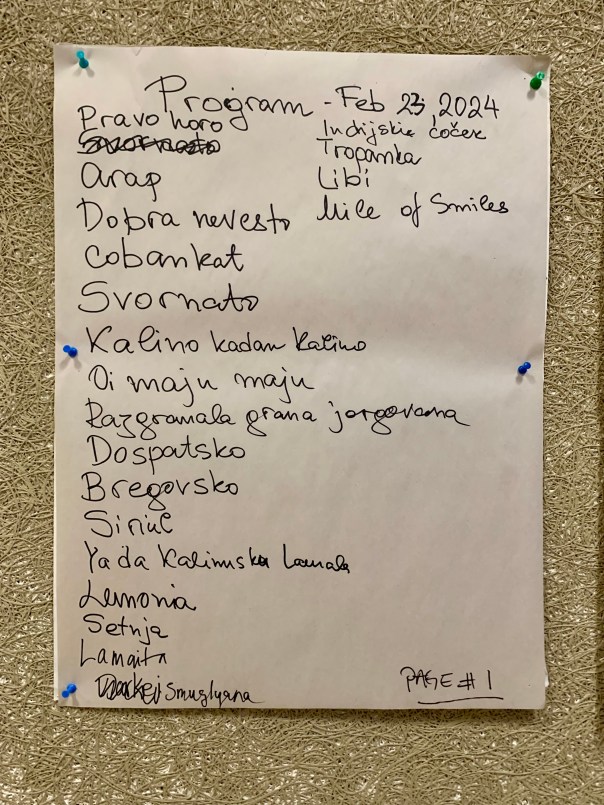 Program - Feb 23, 2024
Pravo horo
Svornato
Arap
Dobra nevesto
Cobankat
Svornato
Kalino kadan Kalino
Oi maju maju
Razgranala grana jorgovana
Dospatsko
Bregovsko
Siriul
Ya da Kalinuska
Lemonia
Setnja
Smuglyana
Indijskie čoček
Tropanka
Libi
Mile of Smiles
PAGE # 1